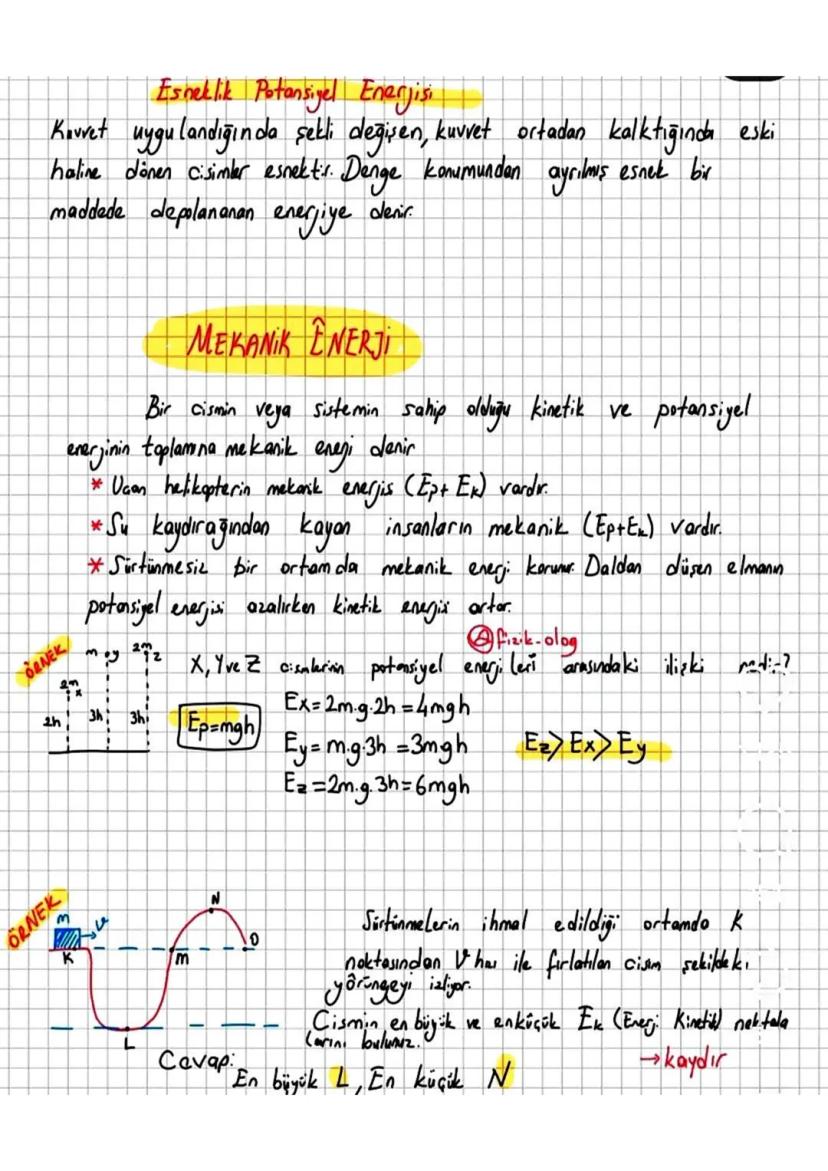 Esneklik Potansiyel Enerjisi
Kuvvet uygulandığında şekli değişen, kuvvet ortadan kalktığında eski
haline dönen cisimler esnektir. Denge konumundan ayrılmış esnek bir
maddede depolananan enerjiye denir.
MEKANİK ÊNERJİ
Bir cismin veya sistemin sahip olduğu kinetik ve potansiyel
enerjinin toplamına mekanik enerji denir
* Uçan helikopterin mekanik enerjis (Ep+ Ek) vardır.
* Su kaydırağından kayan insanların mekanik (Ep+Ek) vardır.
* Sürtünmesiz bir ortamda mekanik enerji korunur. Daldan düşen elmanın
potansiyel enerjisi azalırken kinetik enerjisi artar.
@fizik-olog
ÖRNEK
m y
2m z
2m x
2h
3h
3h
X, Y ve Z cisimlerinin potansiyel enerjileri arasındaki ilişki nedir?
Ep=mgh
Ex=2m.g.2h=4mgh
Ey=m.g.3h=3mgh
Ez=2m.g.3h=6mgh
Ez>Ex>Ey
ÖRNEK
m
v
K
L
m
N
O
Sürtünmelerin ihmal edildiği ortamda K
noktasından V hızı ile fırlatılan cisim şekildeki
yörüngeyi izliyor.
Cismin en büyük ve en küçük Ek (Enerji Kinetik) nokta
larını bulunuz.
→kaydır
Cevap:
En büyük L, En küçük N